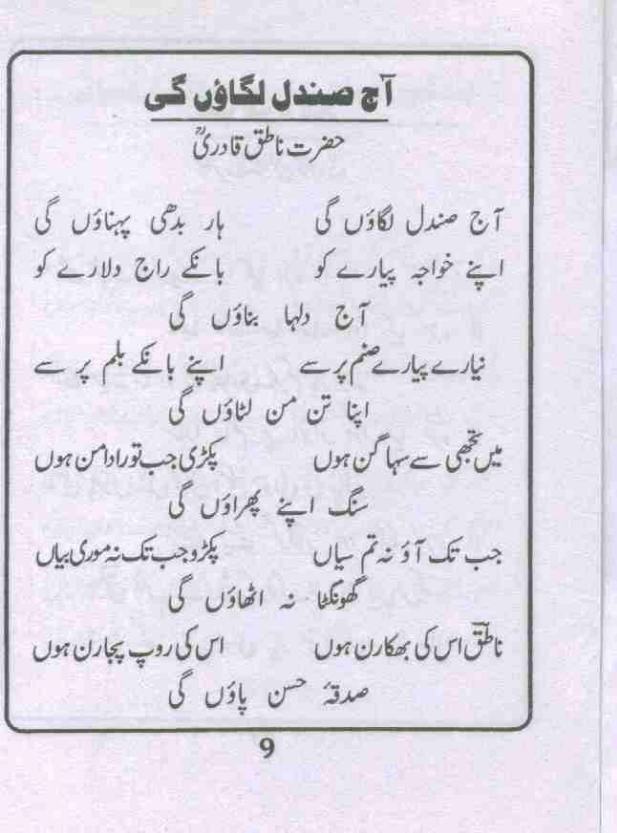 آج صندل لگاؤں گی
حضرت ناطق قادریؒ
آج صندل لگاؤں گی ہار بدھی پہناؤں گی
اپنے خواجہ پیارے کو بانکے راج دلارے کو
آج دلہا بناؤں گی
نیارے پیارے صنم پر سے اپنے بانکے بلم پر سے
اپنا تن من لٹاؤں گی
میں تجھی سے سہاگن ہوں پکڑی جب تورا دامن ہوں
سنگ اپنے پھراؤں گی
جب تک آؤ نہ تم سیاں پکڑو جب تک نہ موری بیاں
گھونگٹا نہ اٹھاؤں گی
ناطقؔ اس کی بھکارن ہوں اس کی روپ پجارن ہوں
صدقۂ حسن پاؤں گی
9